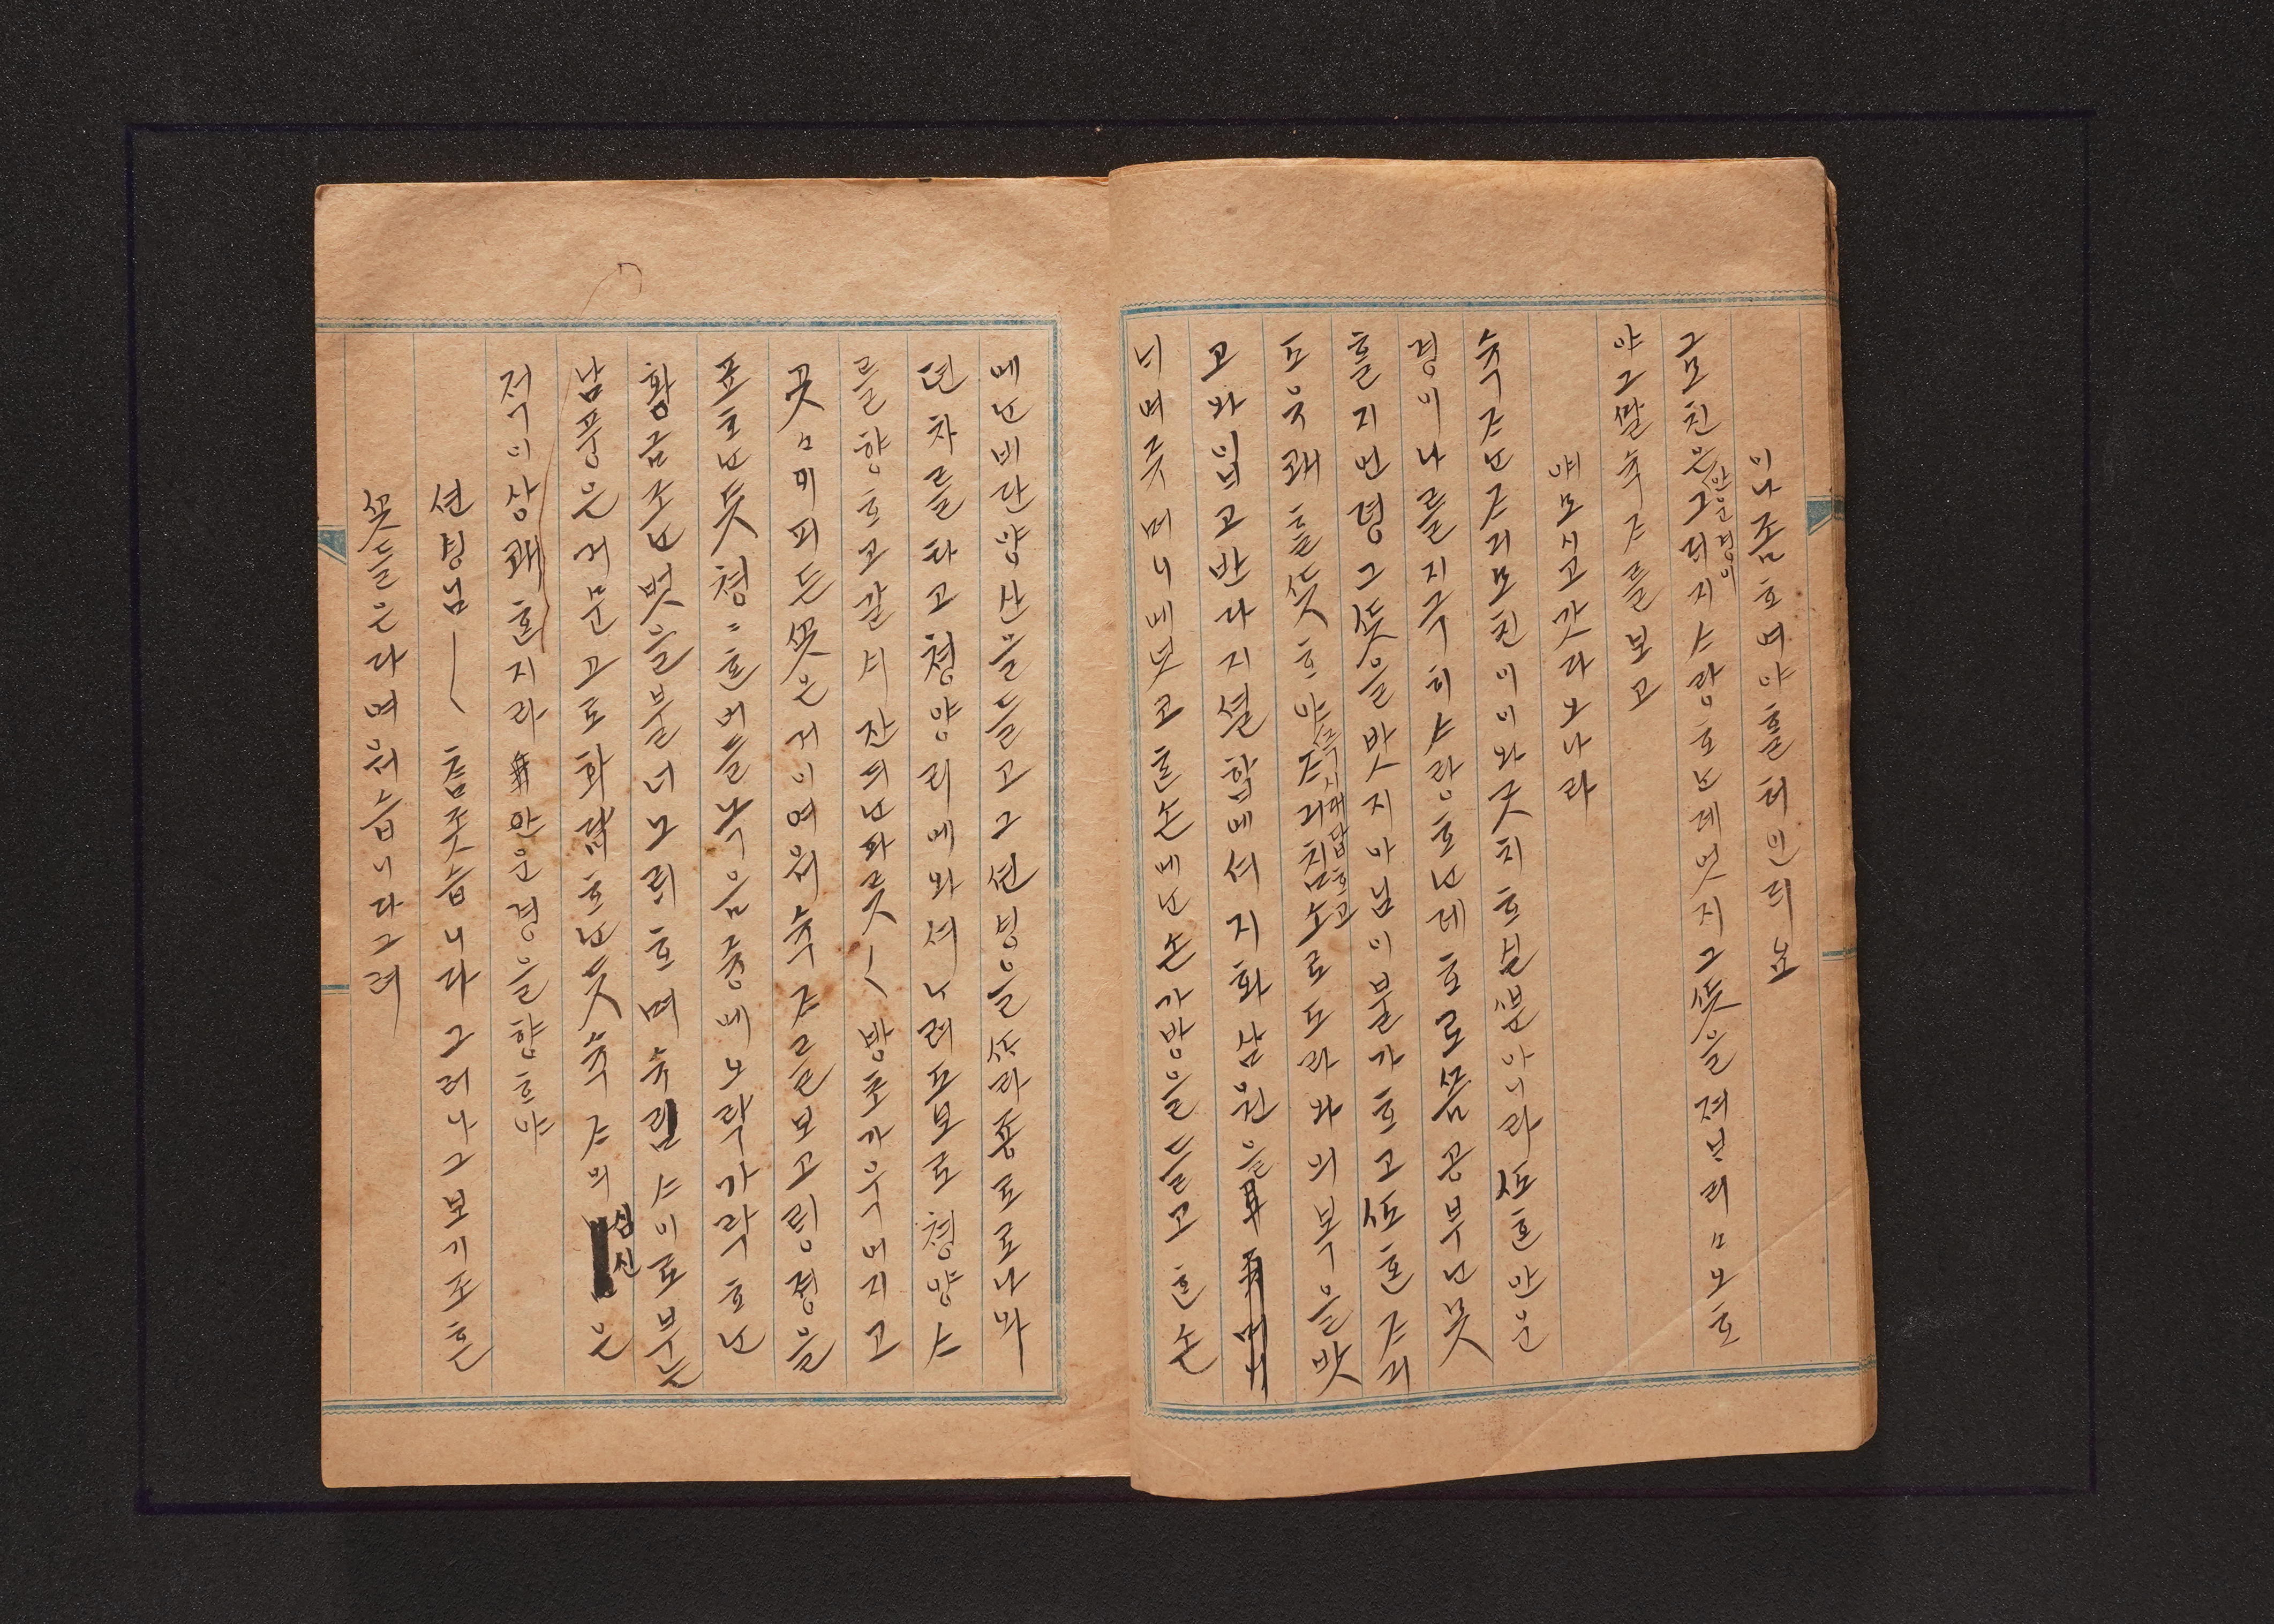 이나좀ᄒᆞ며야ᄒᆞᆯ터인ᄃᆡ요
그모친은만운경이그ᄃᆡ지ᄉᆞ랑ᄒᆞᄂᆞᆫ데엇지그ᄯᅳᆺ을져ᄇᆞ리ᄒᆞ
야그ᄯᆞᆯ숙ᄌᆞ를보고
얘모시고갓다오나라
숙ᄌᆞᄂᆞᆫᄌᆞ긔모친이이와ᄀᆞᆺ치ᄒᆞ실ᄲᅮᆫ아니라ᄯᅩᄒᆞᆫ만운
경이나를지극히ᄉᆞ랑ᄒᆞᄂᆞᆫ데ᄒᆞ로ᄶᅳᆷ공부ᄂᆞᆫ못
ᄒᆞᆯ지언뎡그ᄯᅳᆺ을밧지아님이불가ᄒᆞ고ᄯᅩᄒᆞᆫᄌᆞ긔
도유쾌ᄒᆞᆯᄯᅳᆺᄒᆞ야즉시대답ᄒᆞ고ᄌᆞ긔침소로도라와의복을밧
고와입고반다지셜합에셔지화삼원을
ᄂᆡ며곳머니에넛코ᄒᆞᆫ손에ᄂᆞᆫ손가방을들고ᄒᆞᆫ손
에ᄂᆞᆫ비단양산을들고그션ᄉᆡᆼ을ᄯᅡ라죵로로나와
뎐차를타고쳥양리에와셔ᄂᆞ려도보로쳥양ᄉᆞ
를향ᄒᆞ고갈ᄉᆡ잔ᄃᆡᄂᆞᆫ파릇〱방초가우거지고
피든ᄭᅩᆺ은거이여워숙ᄌᆞ를보고령졍을
표ᄒᆞᄂᆞᆫ듯쳥〻ᄒᆞᆫ버들녹음즁에노락가락ᄒᆞᄂᆞᆫ
황금조ᄂᆞᆫ벗을불너노ᄅᆡᄒᆞ며수림ᄉᆞ이로부ᄂᆞᆫ
남풍은거문고로화답ᄒᆞᄂᆞᆫ듯숙ᄌᆞ의심신은
적이상쾌ᄒᆞᆫ지라만운경을향ᄒᆞ야
션ᄉᆡᆼ님〱 춤좃슴니다그러나그보기조ᄒᆞᆫ
ᄭᅩᆺ들은다며워슴니다그려